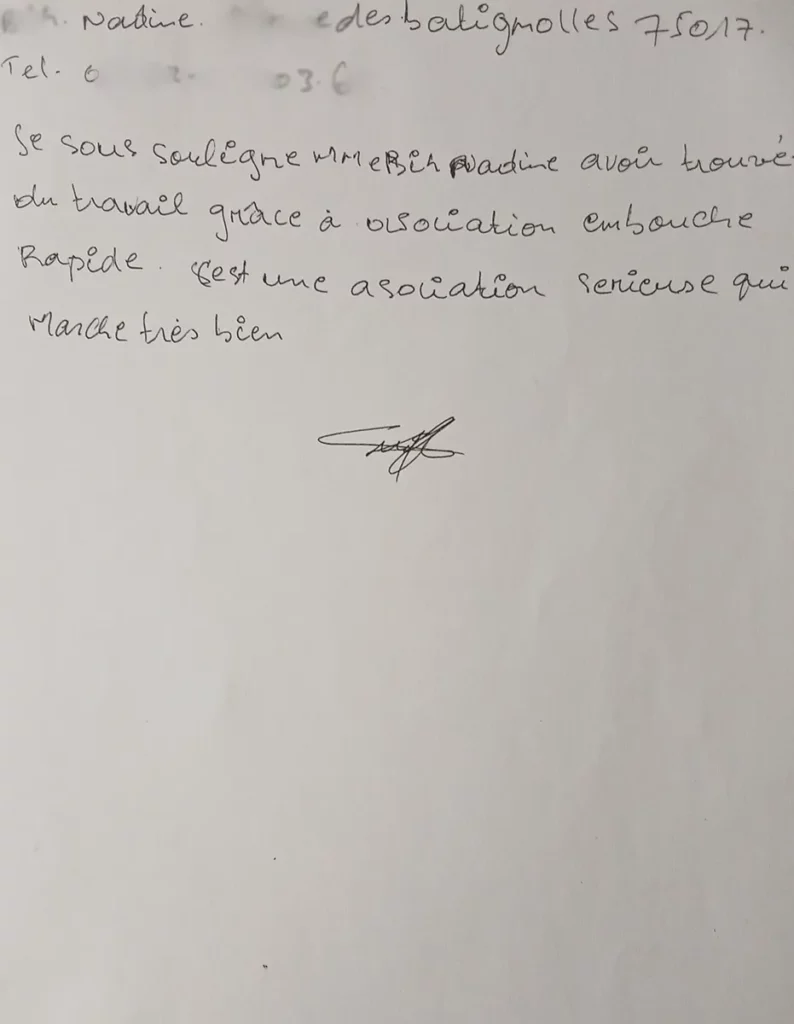 Nadine. e des batignolles 75017.
Tel. 6 03.6
Je sous soulégne MMe Bih Nadine avoir trouvé
du travail grâce à asociation embouche
Rapide. s'est une asociation serieuse qui
Marche très bien